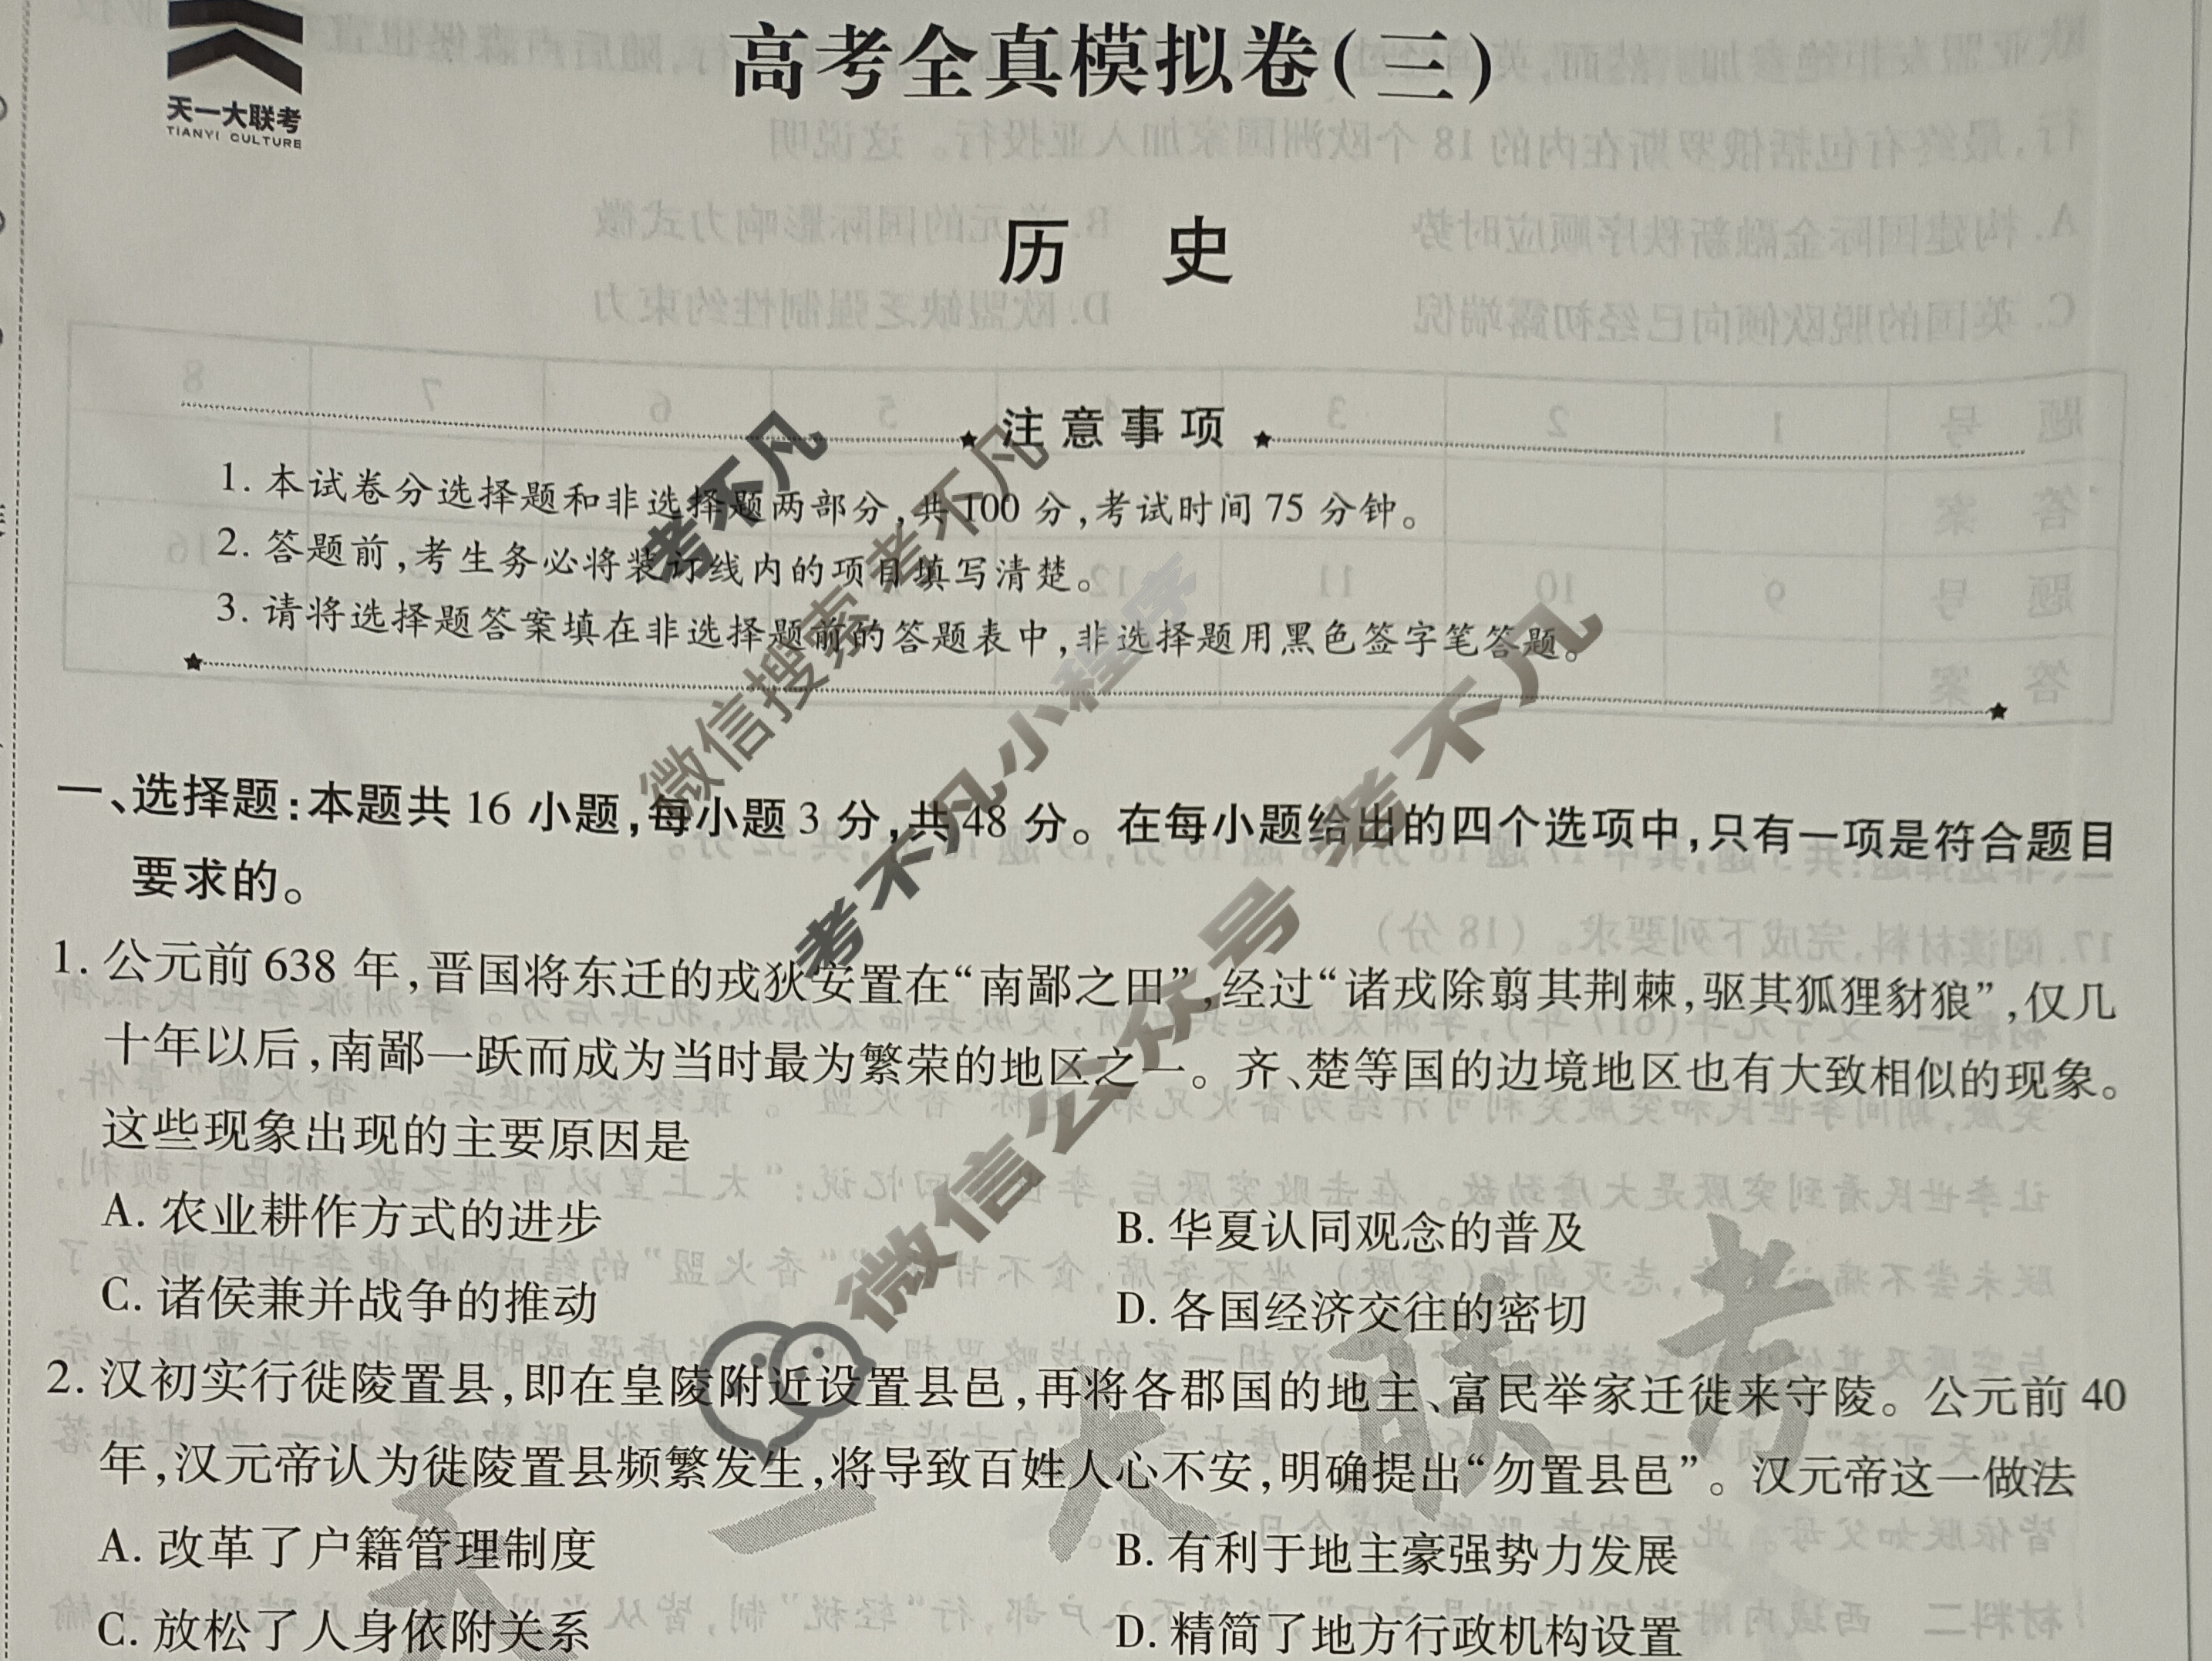 高考全真模拟卷(三)
天一大联考
TIANYI CULTURE
历 史
注意事项
1. 本试卷分选择题和非选择题两部分,共100分,考试时间75分钟。
2. 答题前,考生务必将装订线内的项目填写清楚。
3. 请将选择题答案填在非选择题前的答题表中,非选择题用黑色签字笔答题。
一、选择题:本题共16小题,每小题3分,共48分。在每小题给出的四个选项中,只有一项是符合题目
要求的。
1. 公元前638年,晋国将东迁的戎狄安置在“南鄙之田”,经过“诸戎除翦其荆棘,驱其狐狸豺狼”,仅几
十年以后,南鄙一跃而成为当时最为繁荣的地区之一。齐、楚等国的边境地区也有大致相似的现象。
这些现象出现的主要原因是
A. 农业耕作方式的进步
B. 华夏认同观念的普及
C. 诸侯兼并战争的推动
D. 各国经济交往的密切
2. 汉初实行徙陵置县,即在皇陵附近设置县邑,再将各郡国的地主、富民举家迁徙来守陵。公元前40
年,汉元帝认为徙陵置县频繁发生,将导致百姓人心不安,明确提出“勿置县邑”。汉元帝这一做法
A. 改革了户籍管理制度
B. 有利于地主豪强势力发展
C. 放松了人身依附关系
D. 精简了地方行政机构设置
考不凡
微信搜索考不凡
考不凡小程序
微信公众号 考不凡
天一大联考